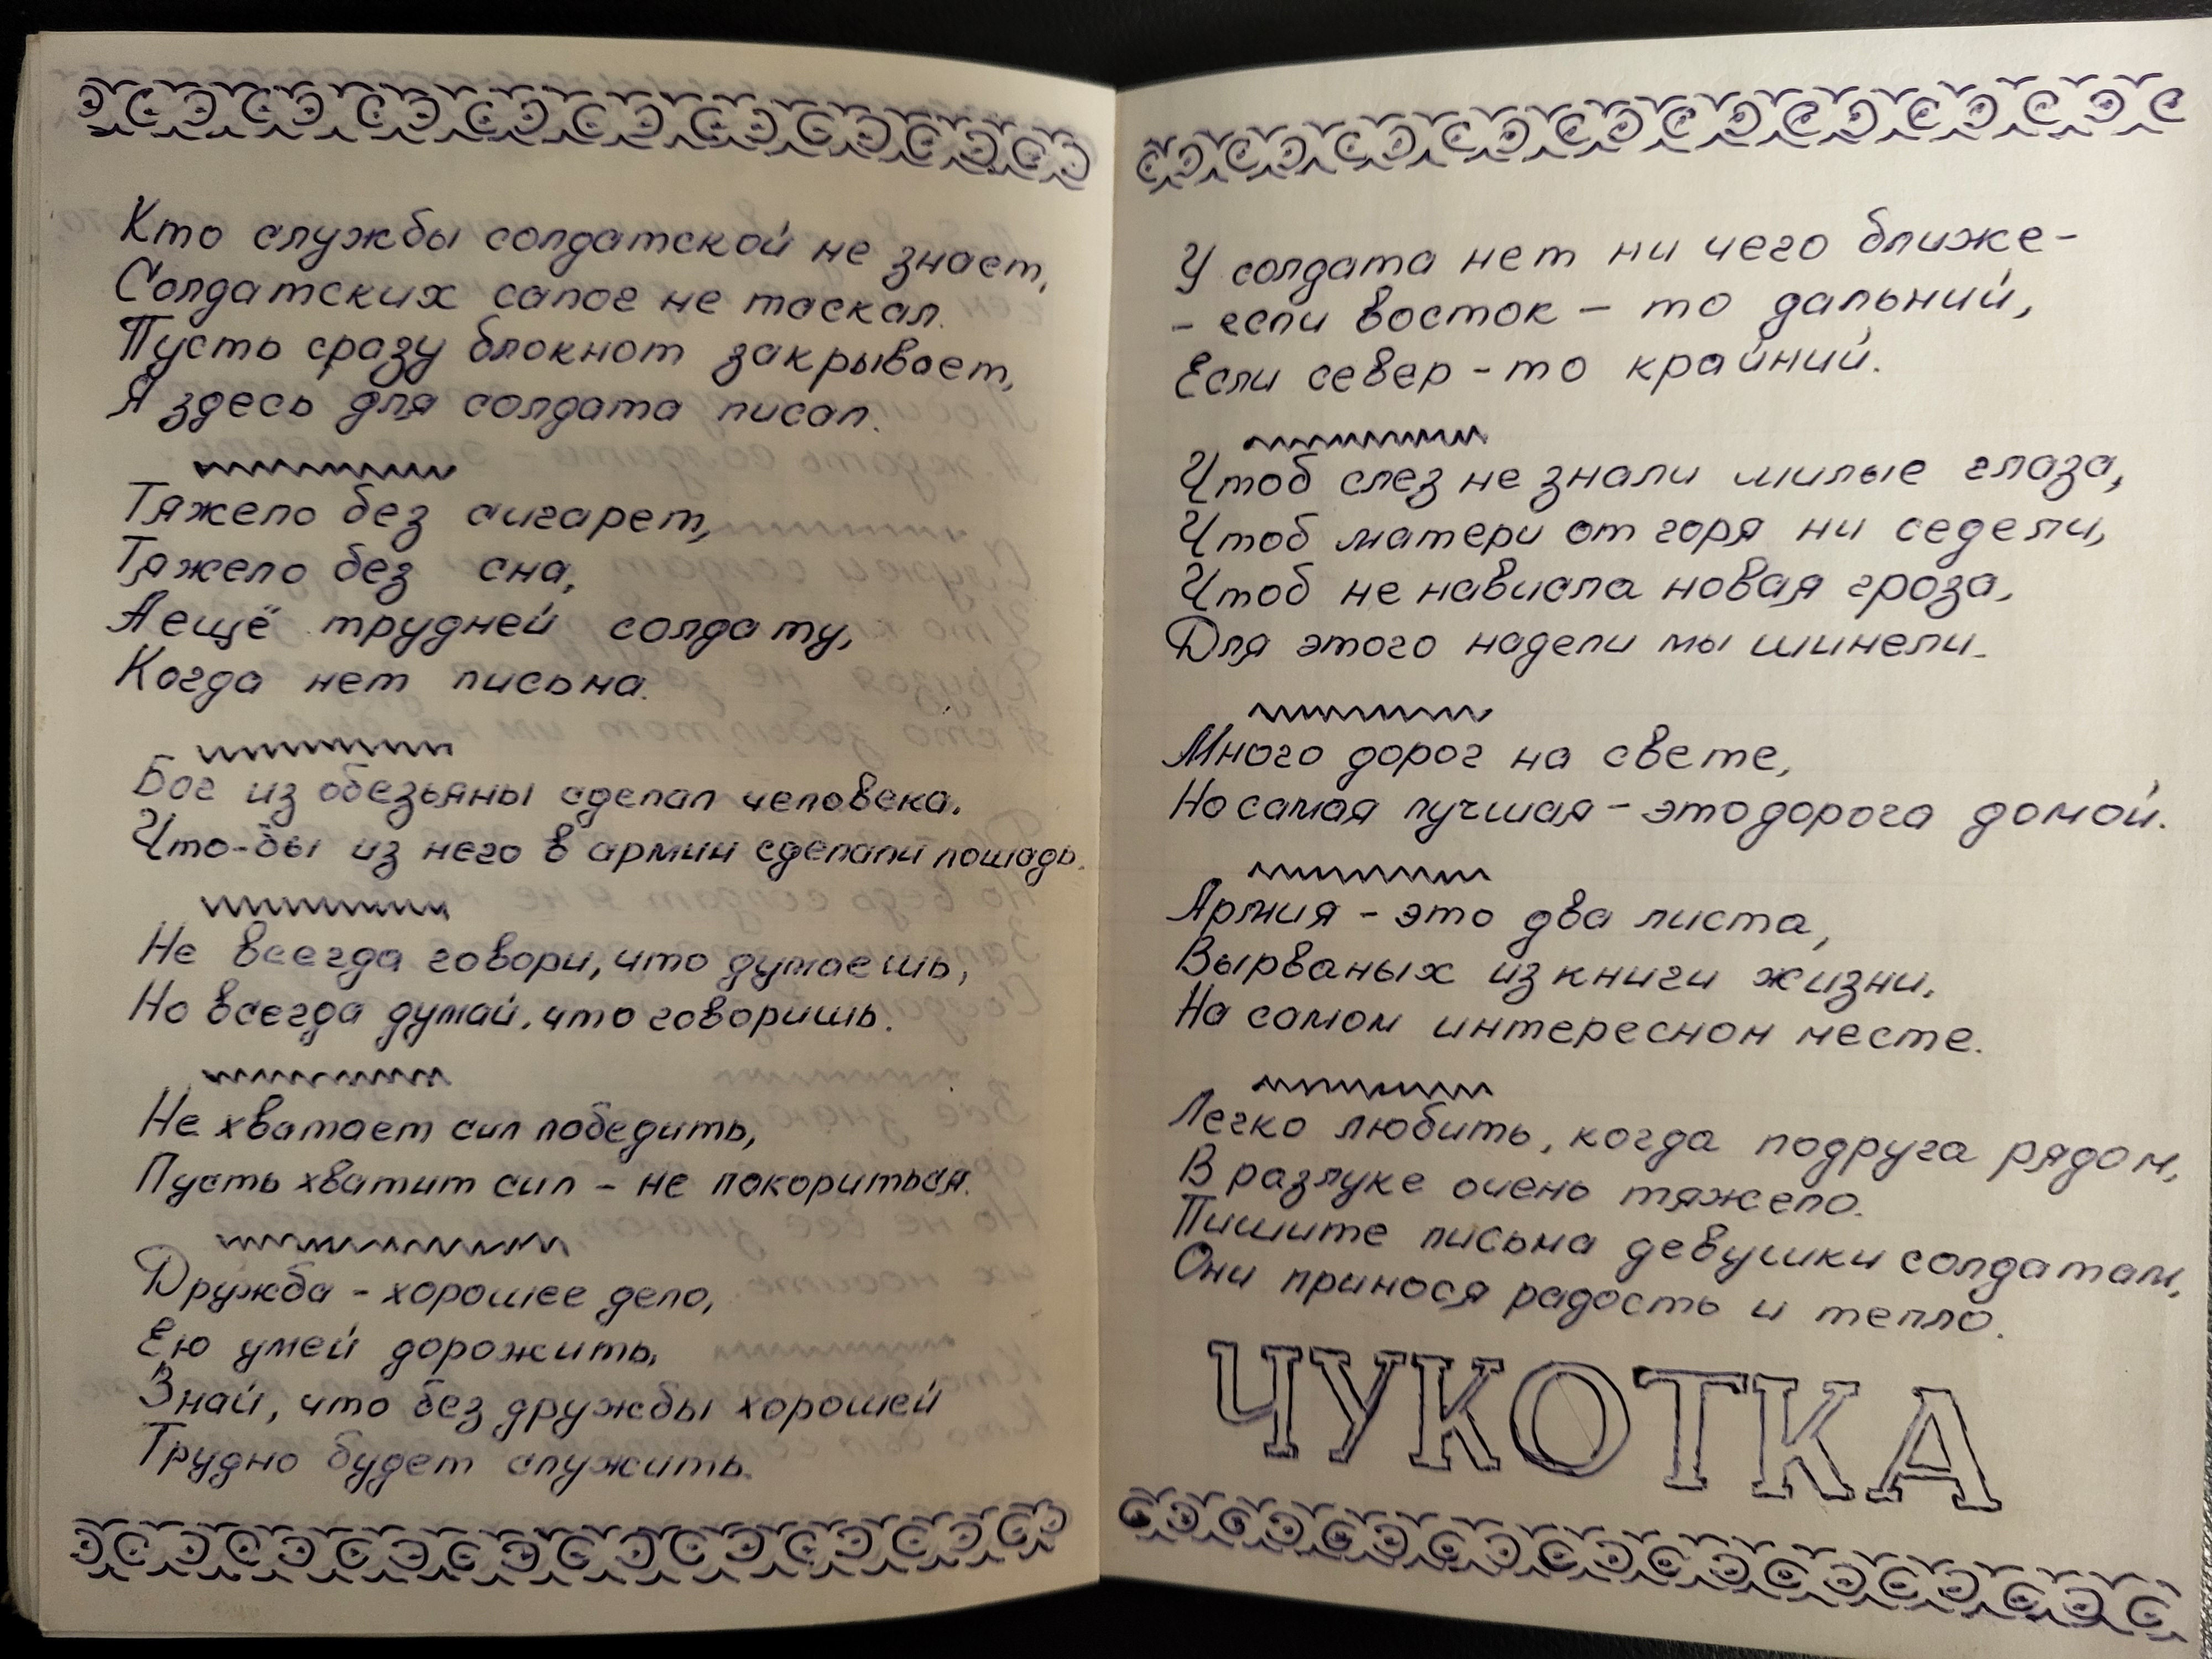 Кто службы солдатской не знает,
Солдатских сапог не таскал.
Пусть сразу блокнот закрывает,
Я здесь для солдата писал.
Тяжело без сигарет,
Тяжело без сна,
А ещё трудней солдату,
Когда нет письма.
Бог из обезьяны сделал человека.
Что-бы из него в армии сделали лошадь.
Не всегда говори, что думаешь,
Но всегда думай, что говоришь.
Не хватает сил победить,
Пусть хватит сил - не покориться.
Дружба - хорошее дело,
Ею умей дорожить,
Знай, что без дружбы хорошей
Трудно будет служить.
У солдата нет ни чего ближе-
- если восток - то дальний,
Если север - то крайний.
Чтоб слез не знали милые глаза,
Чтоб матери от горя ни седели,
Чтоб не нависла новая гроза,
Для этого надели мы шинели.
Много дорог на свете,
Но самая лучшая - это дорога домой.
Армия - это два листа,
Вырваных из книги жизни,
На самом интересном месте.
Легко любить, когда подруга рядом,
В разлуке очень тяжело.
Пишите письма девушки солдатам,
Они принося радость и тепло.
ЧУКОТКА